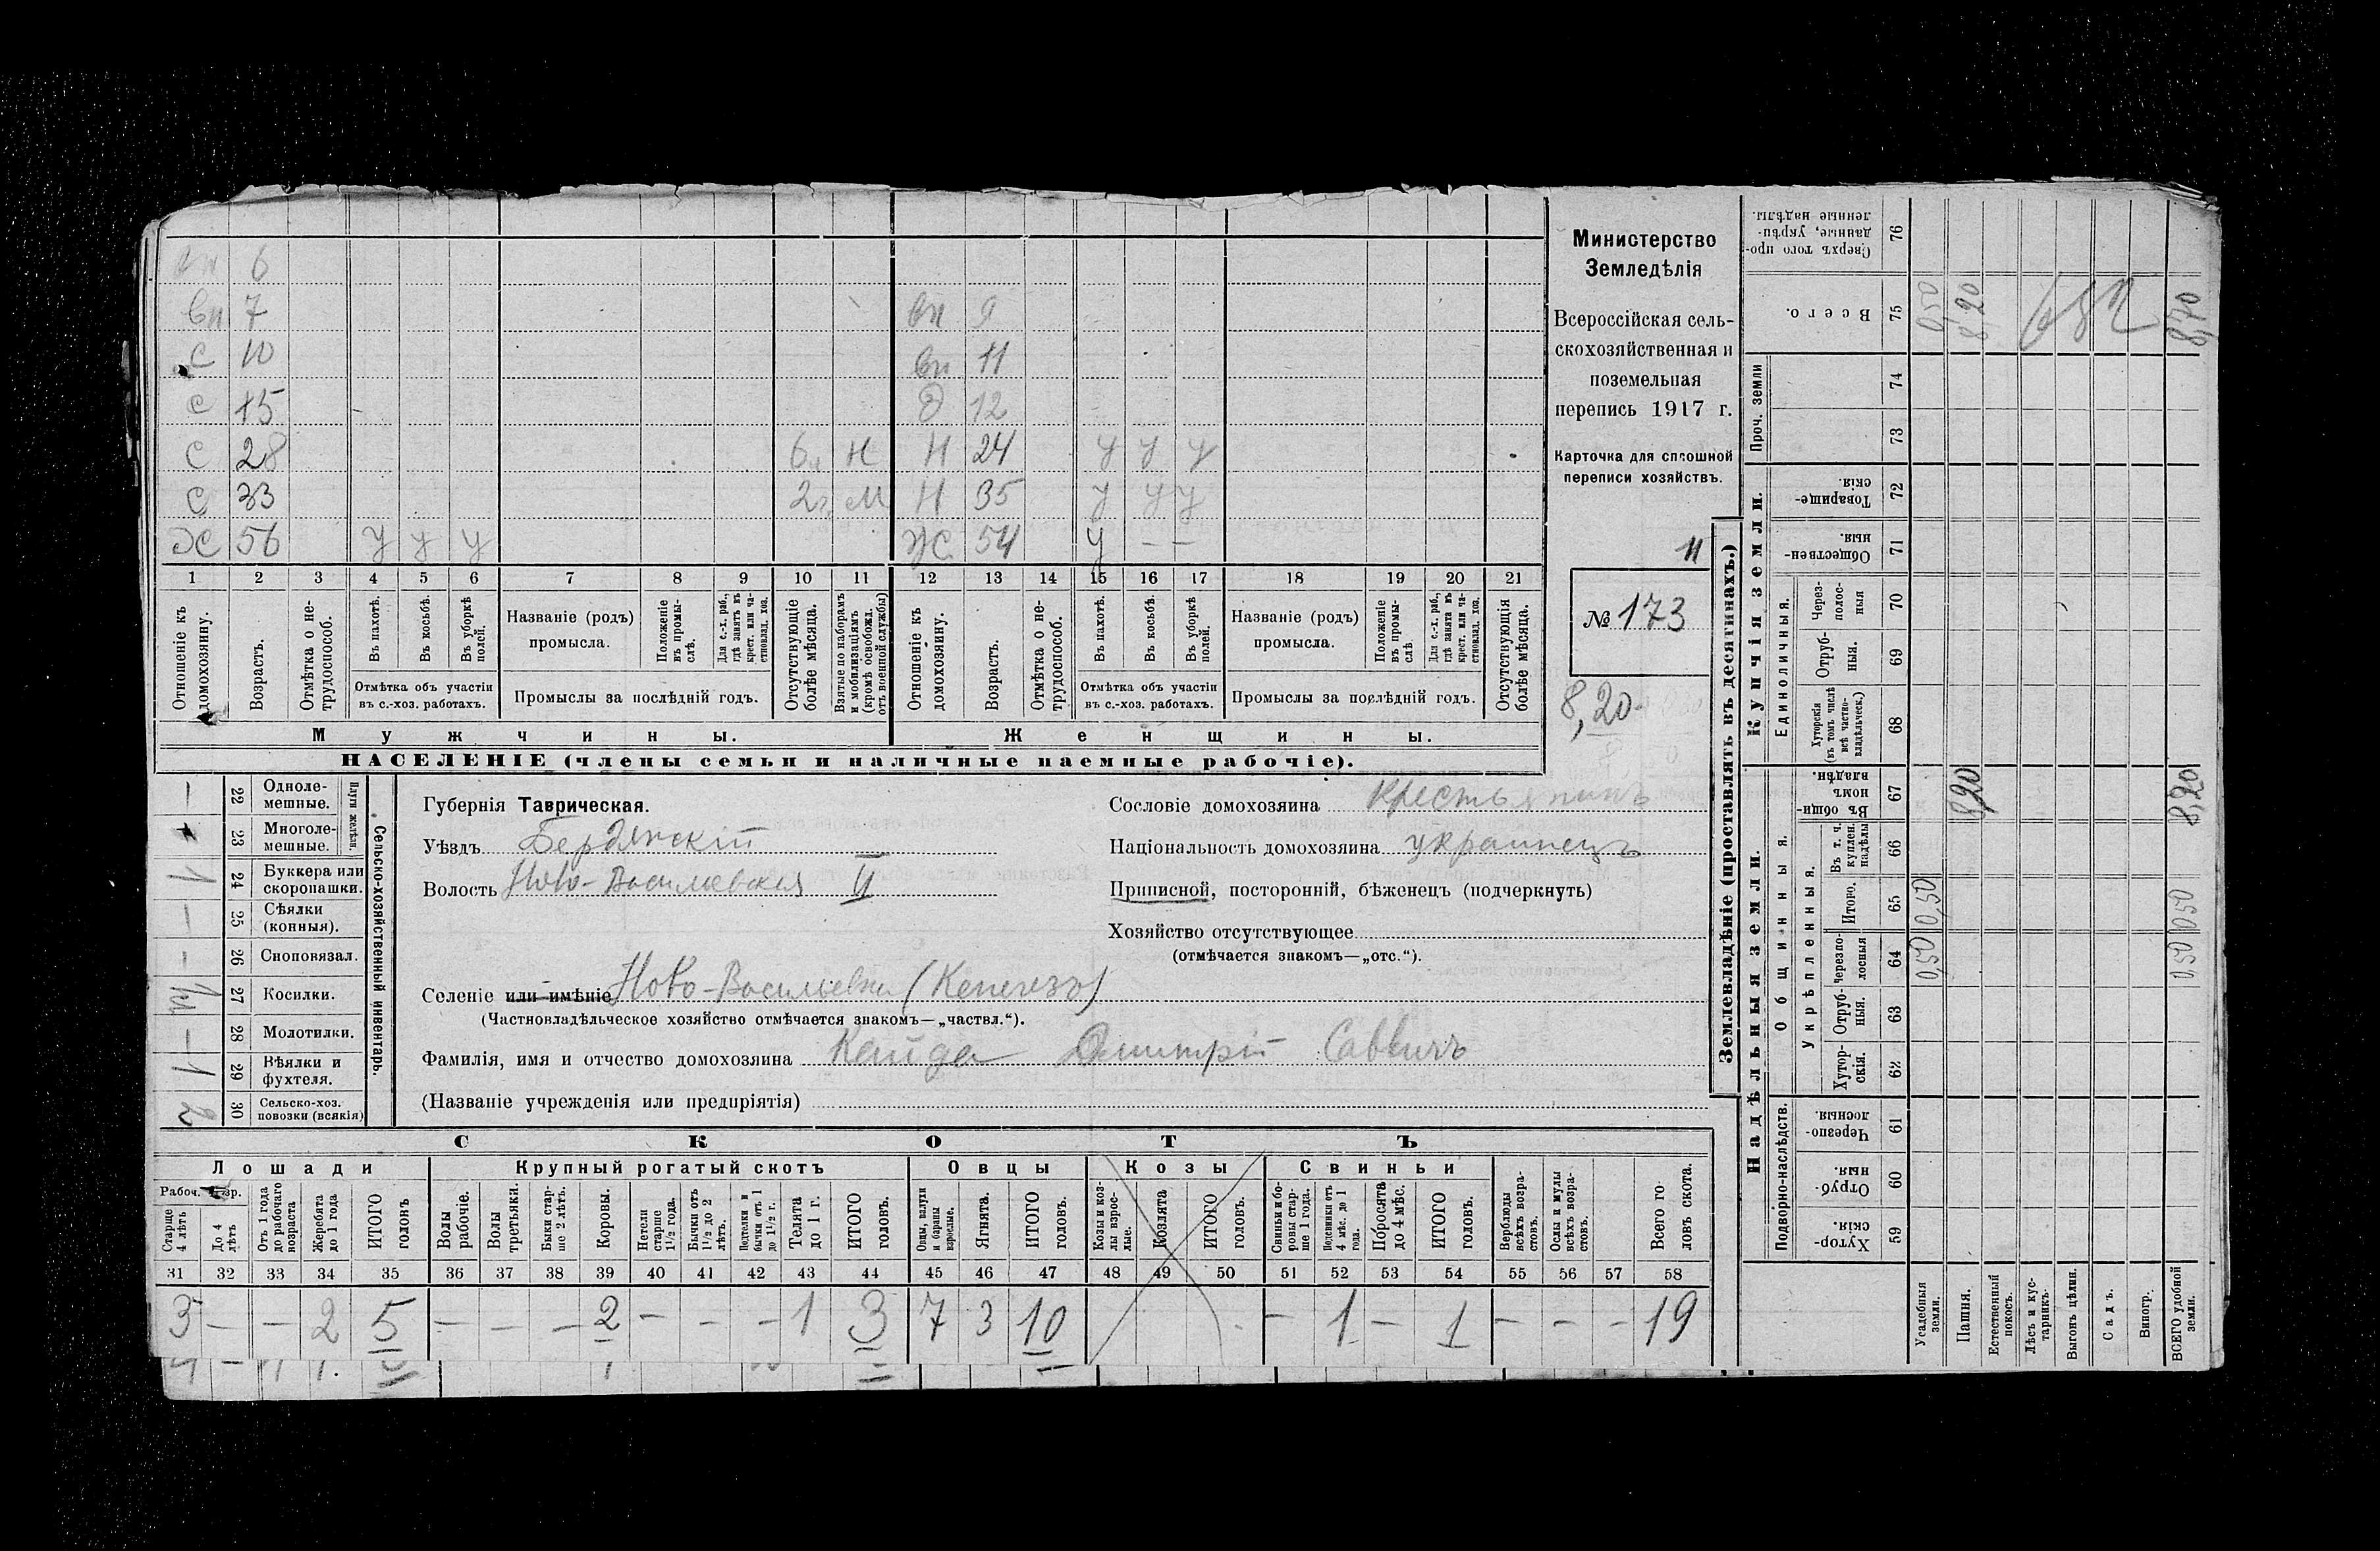 вн 6
вн 7 вн 9
с 10 вн 11
с 15 д 12
с 28 6 н Н 24 у у у
с 33 2 м Н 35 у у у
Ж 56 у у у Ж 54 у — —
1 2 3 4 5 6 7 8 9 10 11 12 13 14 15 16 17 18 19 20 21
Отношеніе къ домохозяину.
Возрастъ.
Отмѣтка о не-
трудоспособ.
Въ пахотѣ.
Въ косьбѣ.
Въ уборкѣ полей.
Отмѣтка объ участіи
въ с.-хоз. работахъ.
Названіе (родъ)
промысла.
Положеніе въ промы-
слѣ.
Для с.-х. раб.,
гдѣ занятъ въ
крест. или ча-
стновлад. хоз.
Промыслы за послѣдній годъ.
Отсутствующіе
болѣе мѣсяца.
Взятые по наборамъ
и мобилизаціямъ
(кромѣ освобожд.
отъ военной службы)
Отношеніе къ
домохозяину.
Возрастъ.
Отмѣтка о не-
трудоспособ.
Въ пахотѣ.
Въ косьбѣ.
Въ уборкѣ
полей.
Отмѣтка объ участіи
въ с.-хоз. работахъ.
Названіе (родъ)
промысла.
Положеніе
въ промы-
слѣ
Для с.-х. раб.,
гдѣ занята въ
крест. или ча-
стновлад. хоз.
Промыслы за послѣдній годъ.
Отсутствующія
болѣе мѣсяца.
Мужчины.
Женщины.
НАСЕЛЕНІЕ (члены семьи и наличные наемные рабочіе).
Министерство
Земледѣлія
Всероссійская сель-
скохозяйственная и
поземельная
перепись 1917 г.
Карточка для сплошной
переписи хозяйствъ.
11
№ 173
8,20
Сельско-хозяйственный инвентарь.
Плуги желѣзн.
— 22 Одноле-
мешные.
23 Многоле-
мешные.
1 24 Буккера или
скоропашки.
— 25 Сѣялки
(конныя).
— 26 Сноповязал.
27 Косилки.
— 28 Молотилки.
1 29 Вѣялки и
фухтеля.
2 30 Сельско-хоз.
повозки (всякія)
Губернія Таврическая.
Уѣздъ Бердянскій
Волость Ново-Васильевская II
Селеніе или имѣніе Ново-Васильевка (Кенегезъ)
(Частновладѣльческое хозяйство отмѣчается знакомъ—„частвл.“).
Фамилія, имя и отчество домохозяина Кайда Дмитрій Саввичъ
(Названіе учрежденія или предпріятія)
Сословіе домохозяина Крестьянинъ
Національность домохозяина украинецъ
Приписной, посторонній, бѣженецъ (подчеркнуть)
Хозяйство отсутствующее
(отмѣчается знакомъ—„отс.“).
СКОТЪ
Лошади
Крупный рогатый скотъ
Овцы
Козы
Свиньи
Старше
4 лѣтъ
До 4
лѣтъ
Отъ 1 года
до рабочаго
возраста
Жеребята
до 1 года
ИТОГО
головъ
Волы
рабочіе.
Волы
третьяки.
Быки стар-
ше 2 лѣтъ.
Коровы.
Нетели
старше
1½ года.
Бычки отъ
1½ до 2
лѣтъ.
Подтелки и
бычки отъ 1
до 1½ г.
Телята
до 1 г.
ИТОГО
головъ.
Овцы, валухи
и бараны
взрослые.
Ягнята.
ИТОГО
головъ.
Козы и коз-
лы взрос-
лые.
Козлята
ИТОГО
головъ.
Свиньи и бо-
ровы стар-
ше 1 года.
Подсвинки отъ
4 мѣс. до 1
года.
Поросята
до 4 мѣс.
ИТОГО
головъ.
Верблюды
всѣхъ возра-
стовъ.
Ослы и мулы
всѣхъ возра-
стовъ.
Всего го-
ловъ скота.
31 32 33 34 35 36 37 38 39 40 41 42 43 44 45 46 47 48 49 50 51 52 53 54 55 56 57 58
3 — — 2 5 — — — 2 — — — 1 3 7 3 10 — 1 — 1 — — — 19
Землевладѣніе (проставлять въ десятинахъ.)
Надѣльныя земли.
Купчія земли.
Проч. земли
Подворно-наслѣдств.
Общинныя.
Укрѣпленныя.
Единоличныя.
Сверхъ того про-
данные, укрѣп-
ленные надѣлы. 76
Всего. 75 0,50 8,20 8,70
74
73
Товарище-
скія. 72
Обществен-
ныя. 71
Через-
полос-
ныя 70
Отруб-
ныя. 69
Хуторскія
(въ томъ числѣ
всѣ частно-
владѣльческ.) 68
Въ общин-
номъ
владѣн. 67 8,20 8,20
Въ т. ч.
куплен.
надѣлы 66
Итого. 65 0,50 0,50
Черезпо-
лосныя 64 0,50 0,50
Отруб-
ныя. 63
Хутор-
скія. 62
Черезпо-
лосныя. 61
Отруб-
ныя. 60
Хутор-
скія. 59
Усадебныя
земли.
Пашня.
Естественный
покосъ.
Лѣсъ и кус-
тарникъ.
Выгонъ цѣлин.
Садъ.
Виногр.
ВСЕГО удобной
земли.